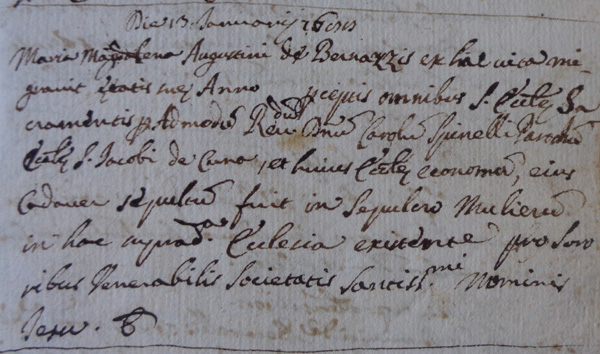 Die 13 Januarij
Maria Magdalena Augustini de Bernazzis ex hac vita mi=
gravit etatis suę Anno pceptis omnibus S. Ecclę Sa
cramentis p Admodū Reu.dum Dnū Carolū Spinelli Parochū
Ecclę S. Jacobi de Cuna, et huius Ecclę economū, eius
Cadauer sepultū fuit in sepulcro Mulierū
in hac Ecclesia existente pro Soro
ribus Venerabilis Societatis Santiss.mi Nominis
Jesu.